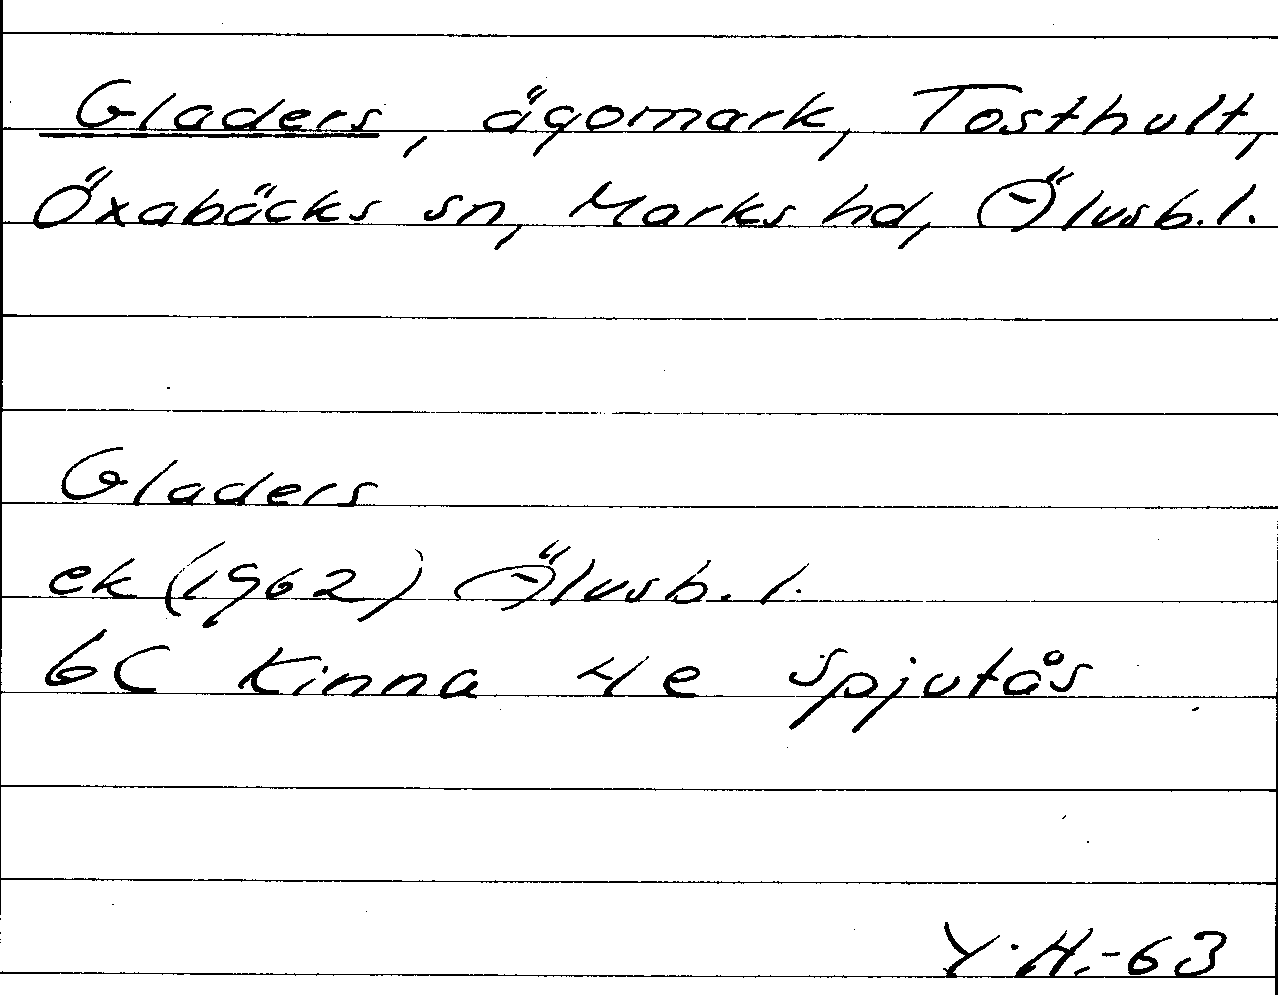 Gladers, ägomark, Tosthult,
Öxabäcks sn, Marks hd, Älvsb. l.
Gladers
ek (1962) Älvsb. l.
6C Kinna 4e Spjutås
Y. H. -63